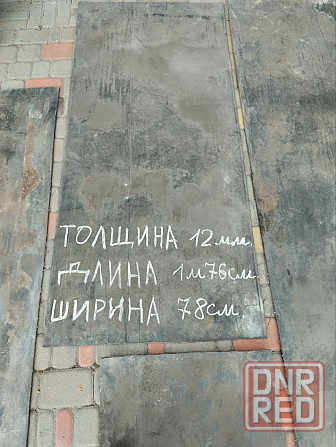 ТОЛЩИНА 12мм.
ДЛИНА 1м76см.
ШИРИНА 78см.
DNR
RED